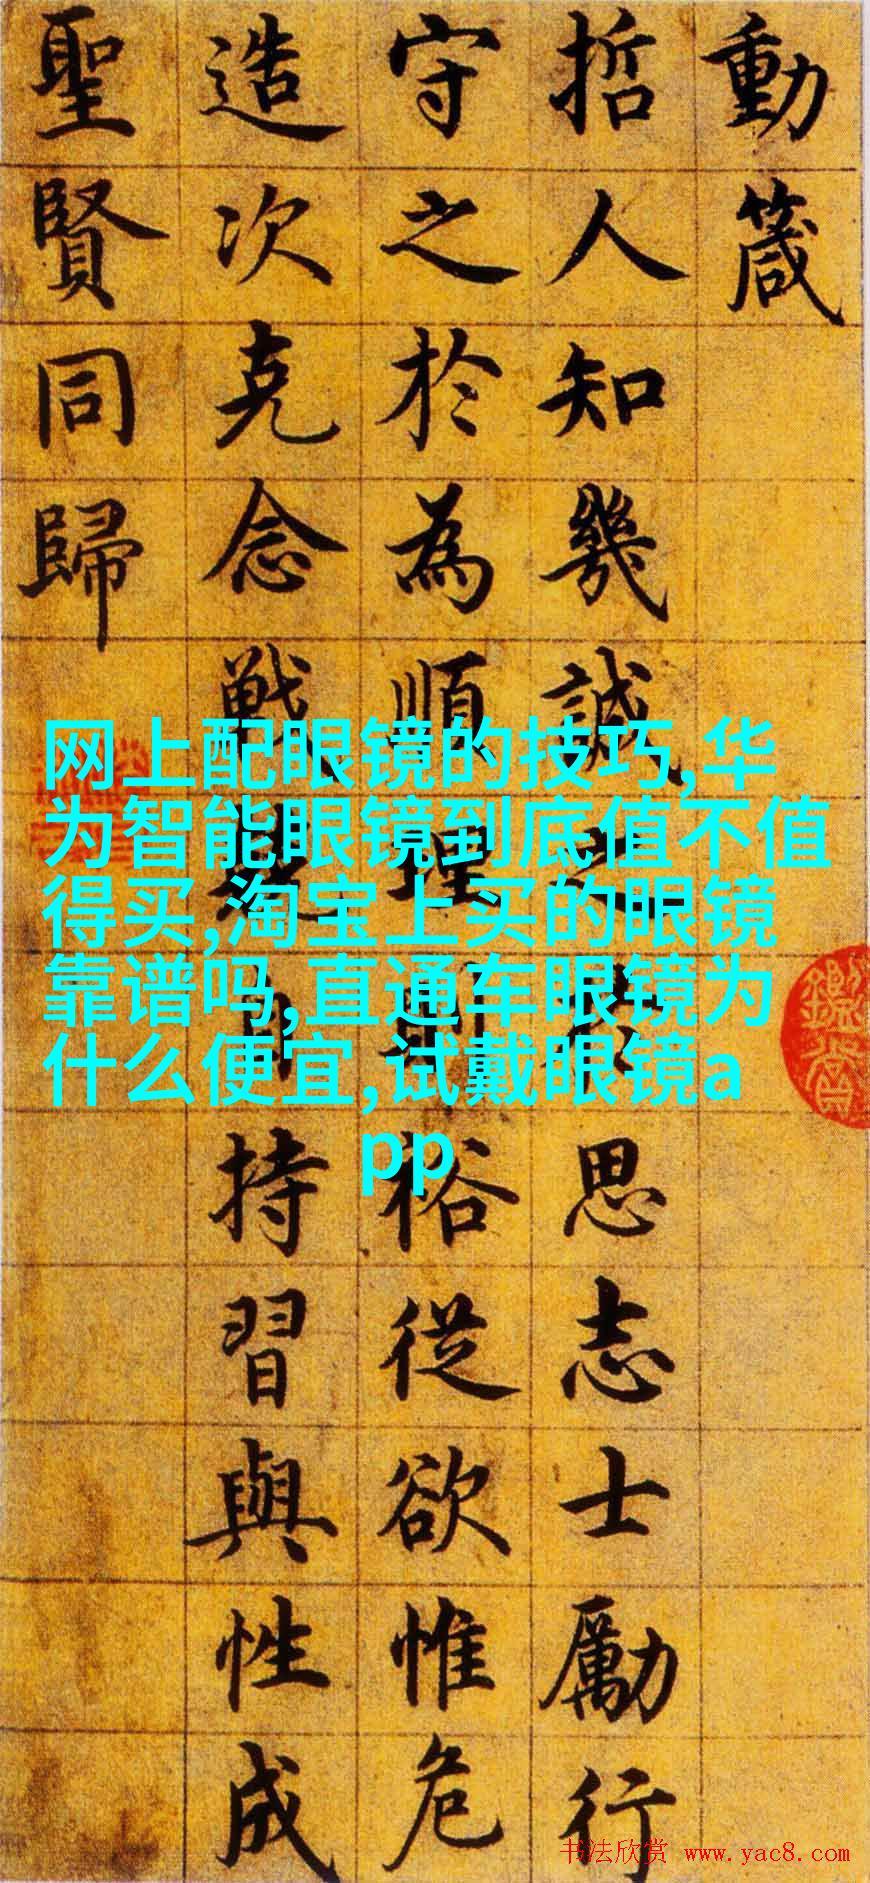 動箴
哲人知幾誠之於思志士勵行
守之於為順理則裕從欲惟危
造次克念戰兢自持習與性成
聖賢同歸
网上配眼镜的技巧,华
为智能眼镜到底值不值
得买,淘宝上买的眼镜
靠谱吗,直通车眼镜为
什么便宜,试戴眼镜a
pp
书法欣赏 www.yac8.com